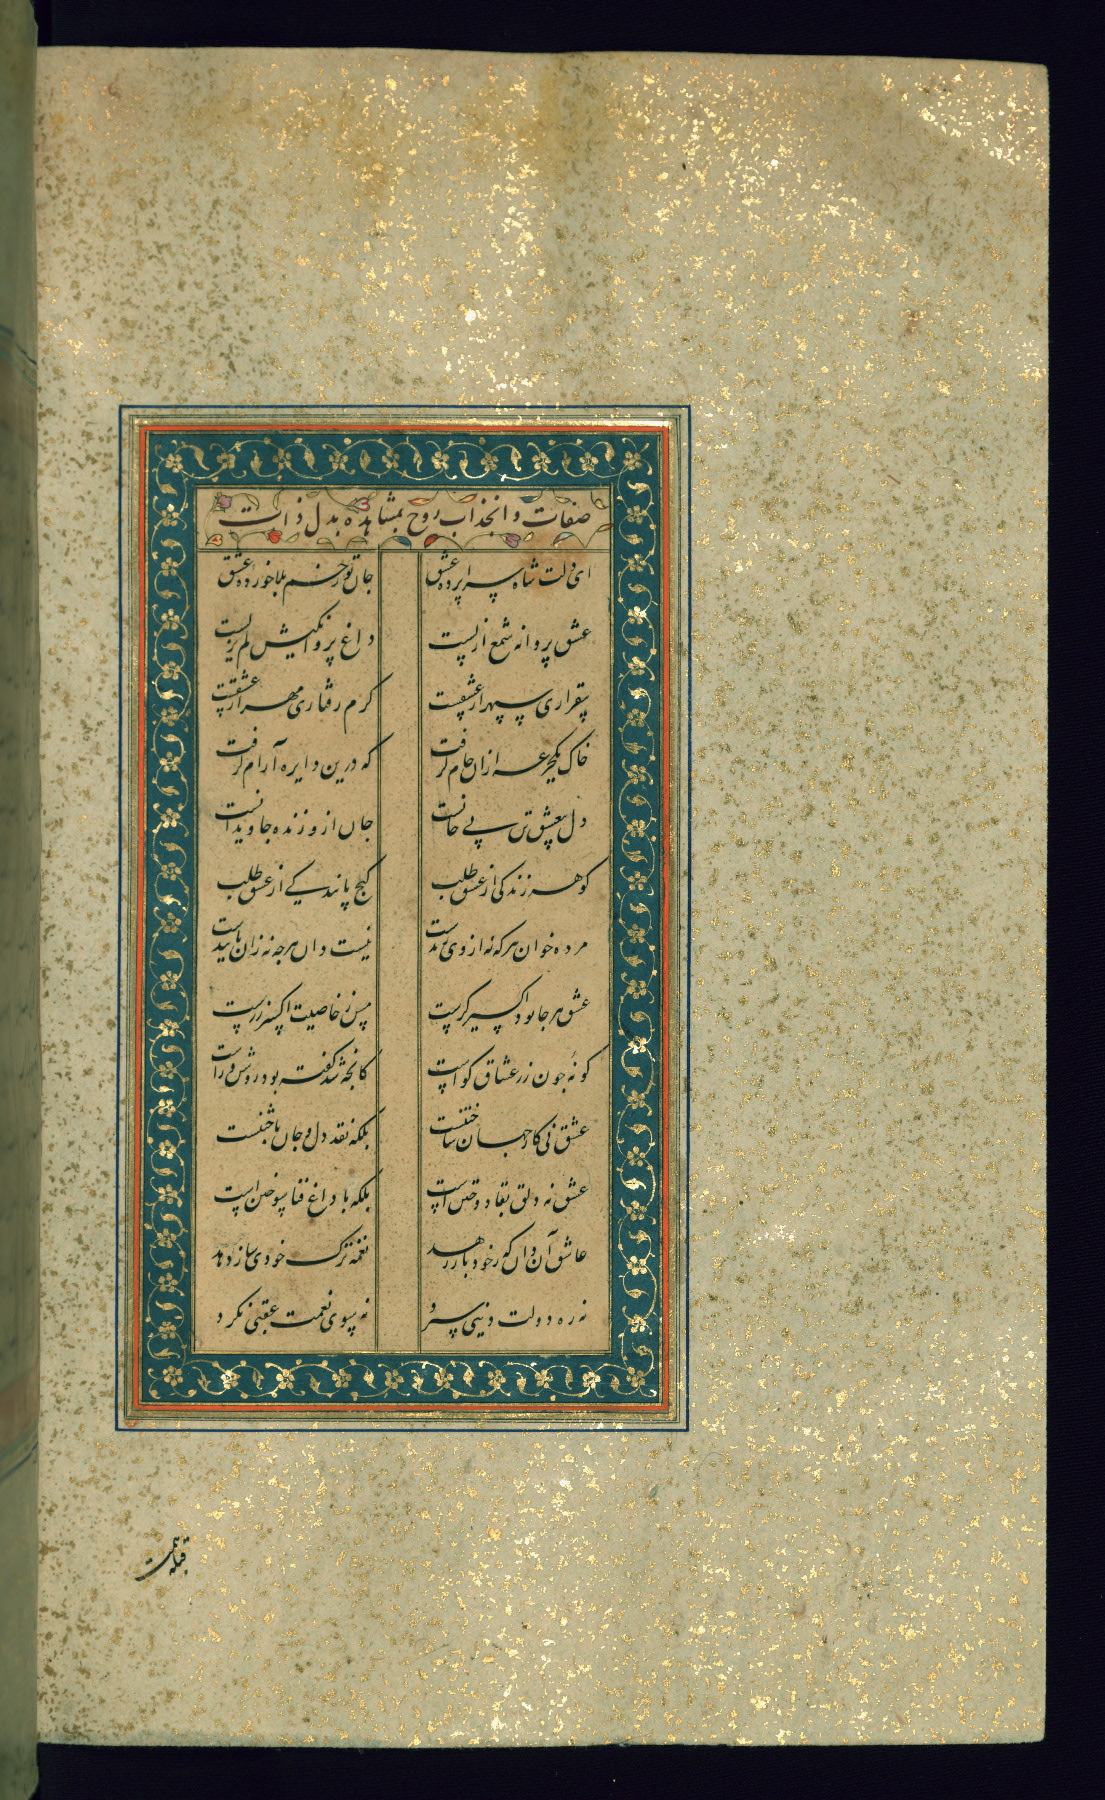 صفات و انجذاب روح بمشاهده بدل ذات
ای دلت شاه سراپرده عشق جان تو زخم بلا خورده عشق
عشق پروانه شمع ازلیست داغ پروانگیش لم یزلیست
بیقراری سپهر از عشقست گرم رفتاری مهر از عشقست
خاک یکجرعه ازان جام گرفت که درین دایره آرام گرفت
دل بی عشق تن بی جانست جان ازو زنده جاویدانست
گوهر زندگی از عشق طلب گنج پایندگی از عشق طلب
مرده خوان هر که نه از وی زندست نیست دان هرچه نه زان پایندست
عشق هر جا بود اکسیر گرست مس ز خاصیت اکسیر زرست
گونه چون زر عشاق گواست کانچه شد گفته بود روشن و راست
عشق نی کار جهان ساختنست بلکه نقد دل و جان باختنست
عشق نه دلق بقا دوختن است بلکه با داغ فنا سوختن است
عاشق آن دان که ز خود باز رهد نغمه ترک خودی ساز دهد
نه ره دولت دنیی سپرد نه بسوی نعمت عقبی نگرد
قبله همت